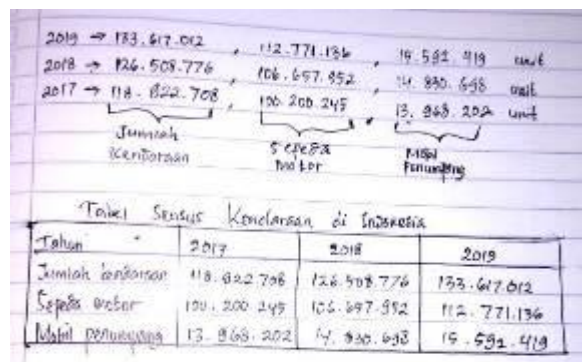 2019 → 133.617.012, 112.771.136, 15.592.419 unit
2018 → 126.508.776, 106.657.952, 14.830.698 unit
2017 → 118.822.708, 100.200.245, 13.968.202 unit
Jumlah Kendaraan
Sepeda Motor
Mobil Penumpang
Tabel Sensus Kendaraan di Indonesia
Tahun 2017 2018 2019
Jumlah kendaraan 118.822.708 126.508.776 133.617.012
Sepeda motor 100.200.245 106.657.952 112.771.136
Mobil penumpang 13.968.202 14.830.698 15.592.419